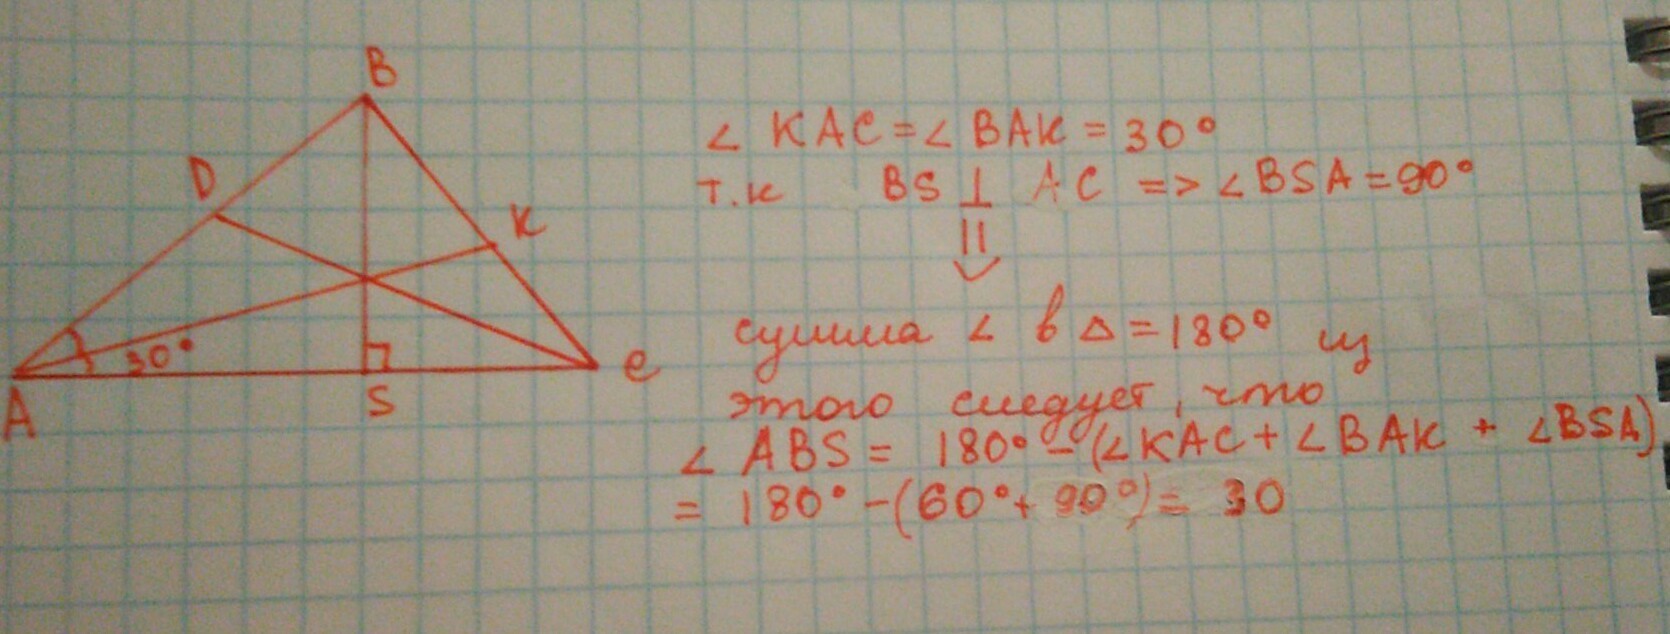 B
D
K
30°
A
S
C
∠ KAC = ∠ BAK = 30°
т.к BS ⊥ AC => ∠BSA = 90°
сумма ∠ в △ = 180° из
этого следует, что
∠ ABS = 180° - (∠KAC + ∠BAK + ∠BSA)
= 180° - (60° + 90°) = 30